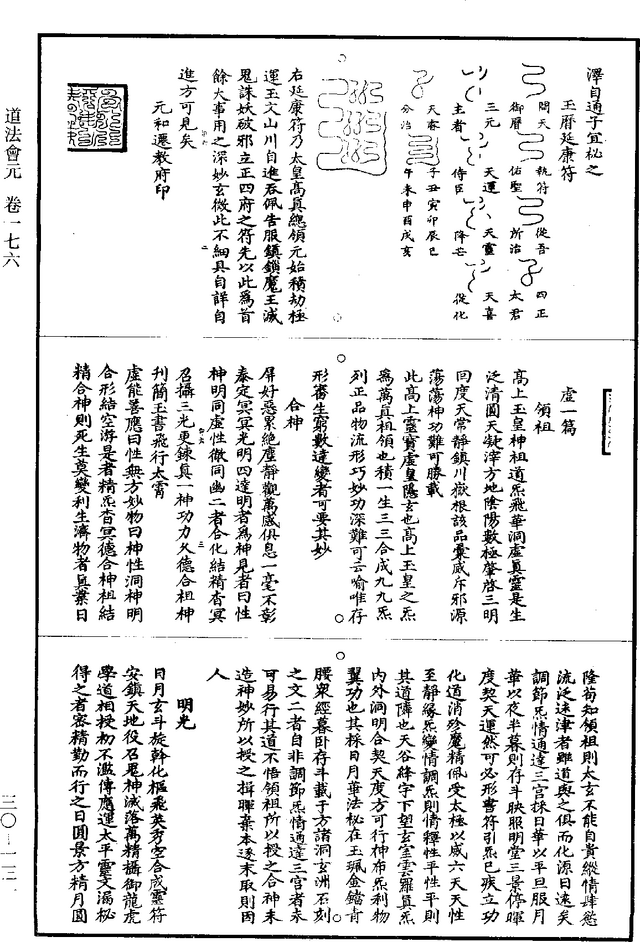 道法會元　卷一七六
三〇—一三一
澤自通子宜秘之
玉曆延康符
問天　執符　從吾　四正
御曆　佑聖　所治　太君
三元　天運　天靈　天喜
主者　侍臣　降妄　從化
天春　子丑寅卯辰巳
分治　午未申酉戌亥
右延康符乃太皇高真總領元始積劫極
運玉文山川自進吞佩告服鎮鎖魔王滅
鬼誅妖破邪立正四府之符先以此為首
餘大事用之深妙玄微此不細具自詳自
進方可見矣
元和遷教府印
虛一篇
領祖
高上玉皇神祖道炁飛華洞虛真靈是生
泛清圓天凝滓方地陰陽數極肇啓三明
回度天常靜鎮川嶽根該品彙威斥邪源
蕩蕩神功難可勝載
此高上靈寳虛皇隱玄也高上玉皇之炁
為萬真祖領也積一生三三合成九九炁
列正品物流形巧妙功深難可云喻唯存
形審生窮數達變者可要其妙
合神
屏好惡累絕塵靜觀萬感俱息一毫不彰
泰定冥冥光明四達明者為神見者曰性
神明同虛性微同幽二者合化結精杳冥
召攝三光更鍊真一神功力久德合祖神
刋簡玉書飛行太霄
虛能善應曰性無方妙物曰神性洞神明
合形結空游是者精炁杳冥德合神祖結
精合神則死生莫變利生濟物者真業日
隆苟知領祖則太玄不能自貴縱情肆慾
流泛迷津者雖道與之俱而化源日遠矣
調節炁情通達三宫採日華以平旦服月
華以夜半暮則存斗映服明堂三景停暉
度契天運然可必形書符引炁已疾立功
化道消殄魔精佩受太極以威六天天性
至靜緣炁變情調炁則情釋性平性平則
其道隣也天谷絳宇下望玄室雲羅真炁
内外洞明合契天度方可行神布炁利物
翼功也其採日月華法秘在玉珮金鐺青
腰衆經暮卧存斗載于方諸洞玄洲石刻
之文二者自非調節炁情通達三官者未
可易行其道不悟領祖所以授之合神未
造神妙所以授之揖暉棄本逐末取則因
人
明光
日月玄斗旋斡化樞飛英秀空合成靈符
安鎮天地役召鬼神滅落萬精攝御龍虎
學道相授初不濫傳應運太平靈文漏秘
得之者客精勤而行之日圓景方精月圓